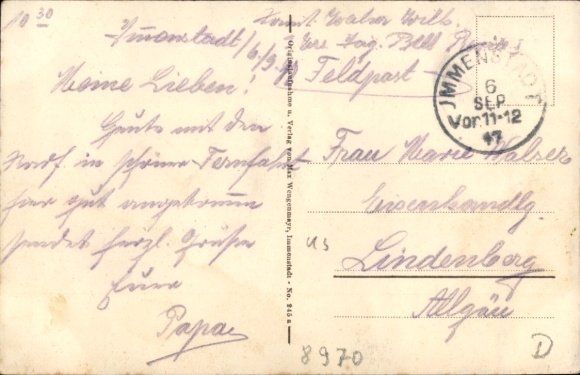 80 30
Immenstadt, 6/9. 17
Meine Lieben!
Heute mit den
in schöner Fernfahrt
hier gut angekommen
sendet herzl. Grüße
Euer
Papa
Walser Wilh.
Ers. Jäg. Batl
Feldpost
IMMENSTADT
6
SEP
Vor.11-12
17
Frau Marie Walser
Eisenhandlg
Lindenberg
Allgäu
Originalaufnahme u. Verlag von Max Wengenmayr, Immenstadt - No. 245 a
8970
D